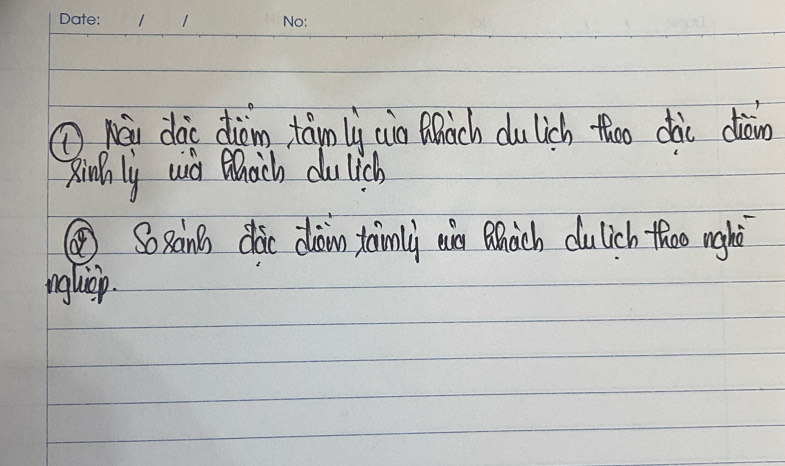 Date: / / No:
① Nêu đặc điểm tâm lý của khách du lịch theo đặc điểm
sinh lý của khách du lịch
② So sánh đặc điểm tâm lý của khách du lịch theo nghề
nghiệp.